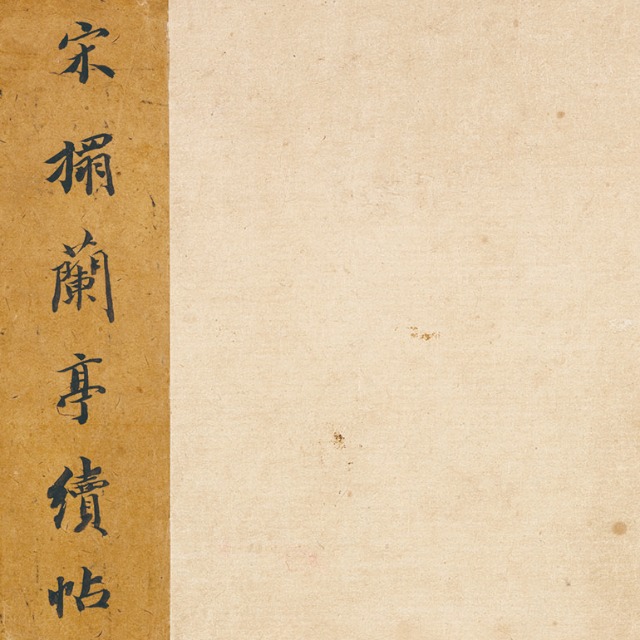 宋搨蘭亭續帖